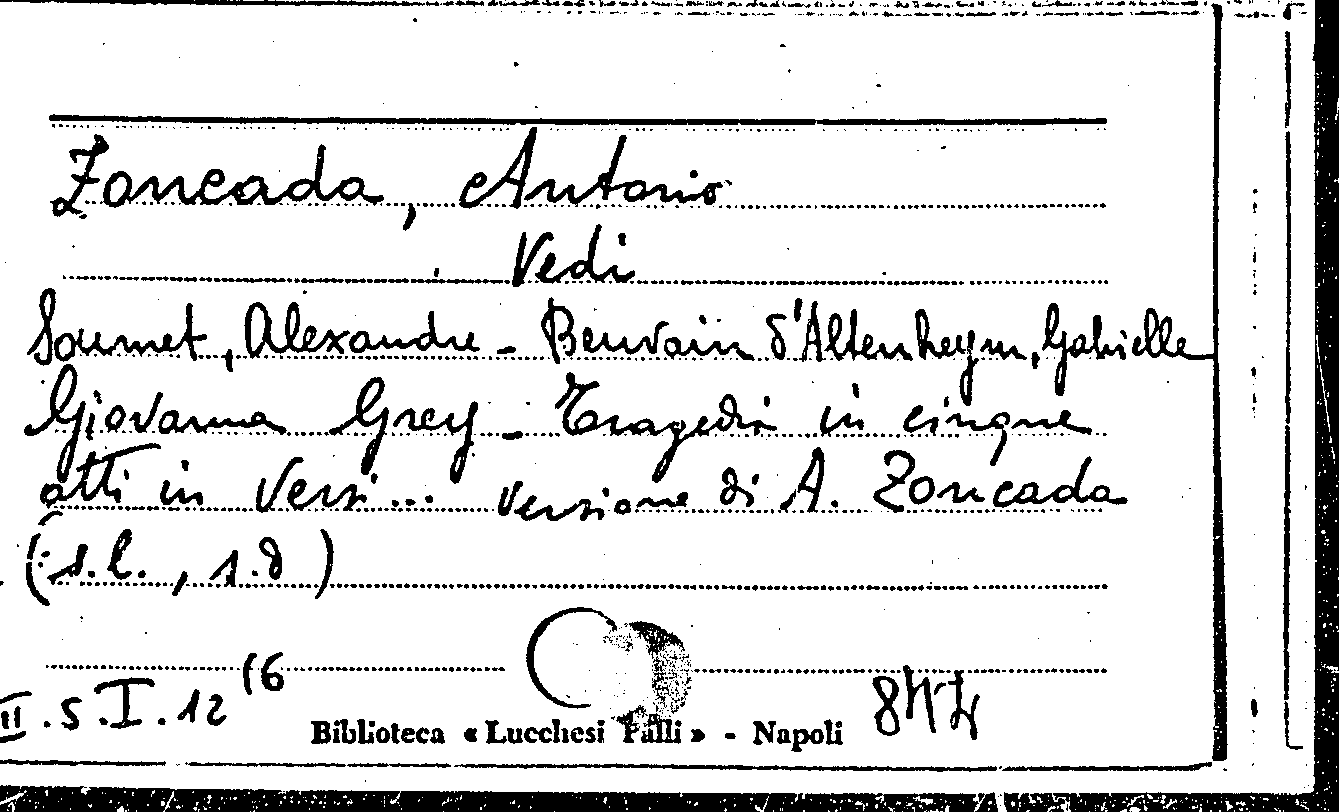 Zoncada, Antonio
Vedi
Soumet, Alexandre - Beuvain d'Altenheym, Gabrielle
Giovanna Grey - Tragedia in cinque
atti in versi... versione di A. Zoncada
(s.l., s.d)
II.5.I.12 (6
Biblioteca « Lucchesi Palli » - Napoli